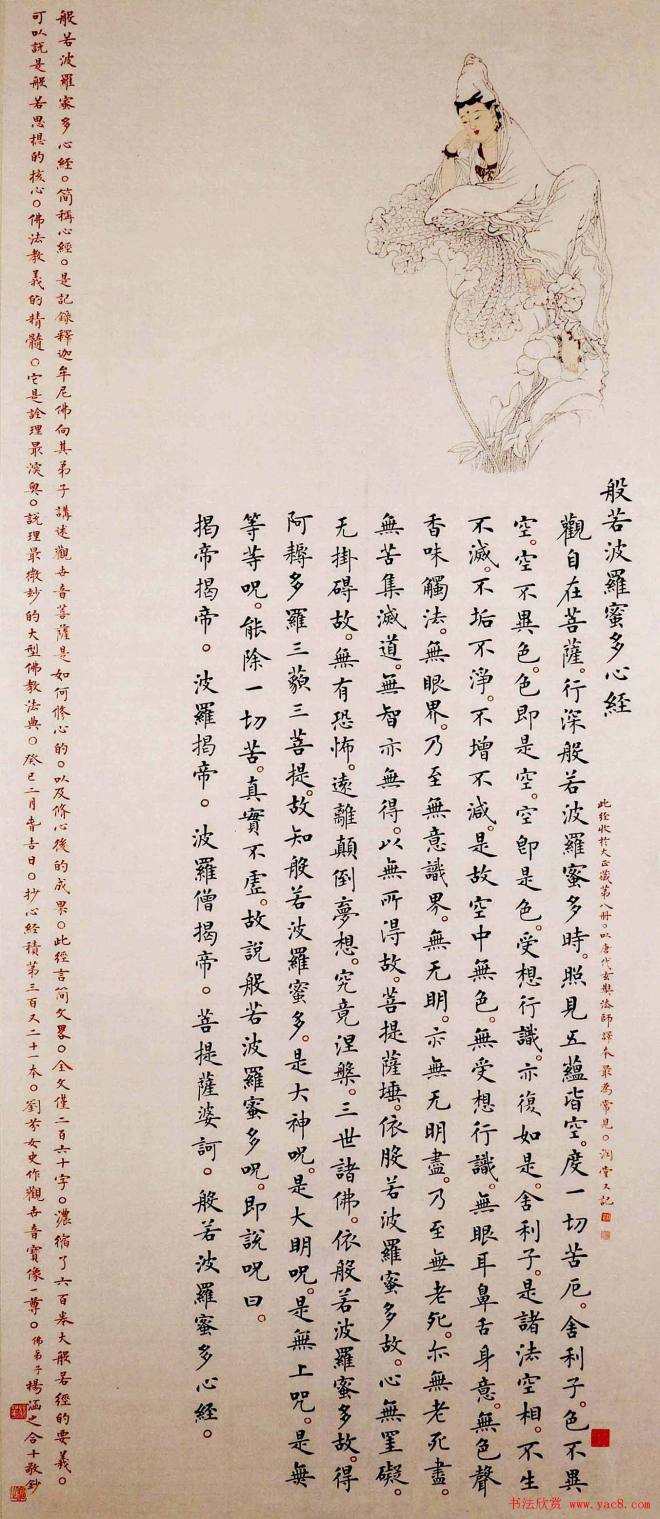 般若波羅蜜多心経
此経收於大正藏第八册。以唐代玄奘法師譯本最為常見。潤堂又記
觀自在菩薩。行深般若波羅蜜多時。照見五蘊皆空。度一切苦厄。舍利子。色不異
空。空不異色。色即是空。空即是色。受想行識。亦復如是。舍利子。是諸法空相。不生
不滅。不垢不淨。不增不減。是故空中無色。無受想行識。無眼耳鼻舌身意。無色聲
香味觸法。無眼界。乃至無意識界。無无明。亦無无明盡。乃至無老死。亦無老死盡。
無苦集滅道。無智亦無得。以無所得故。菩提薩埵。依般若波羅蜜多故。心無罣礙。
无掛碍故。無有恐怖。遠離顛倒夢想。究竟涅槃。三世諸佛。依般若波羅蜜多故。得
阿耨多羅三藐三菩提。故知般若波羅蜜多。是大神咒。是大明咒。是無上咒。是無
等等呪。能除一切苦。真實不虛。故説般若波羅蜜多呪。即説呪曰。
揭帝揭帝。波羅揭帝。波羅僧揭帝。菩提薩婆訶。般若波羅蜜多心経。
般若波羅蜜多心経。简稱心経。是記錄釋迦牟尼佛向其弟子講述觀世音菩薩是如何修心的。以及修心後的成果。此経言简文畧。全文僅二百六十字。濃縮了六百卷大般若經的要義。
可以説是般若思想的核心。佛法教義的精髓。它是詮理最深奥。説理最微妙的大型佛教法典。癸巳二月春吉日。抄心経積第三百又二十一本。劉芳女史作觀世音寶像一尊。佛弟子楊涵之合十敬鈔
书法欣赏 www.yac8.com